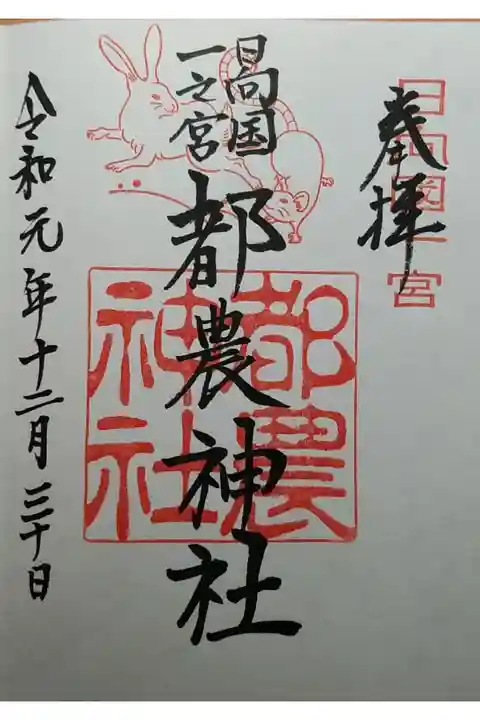 奉拝
日向国一宮
日向国
一之宮
都農神社
都農
神社
令和元年十二月三十日